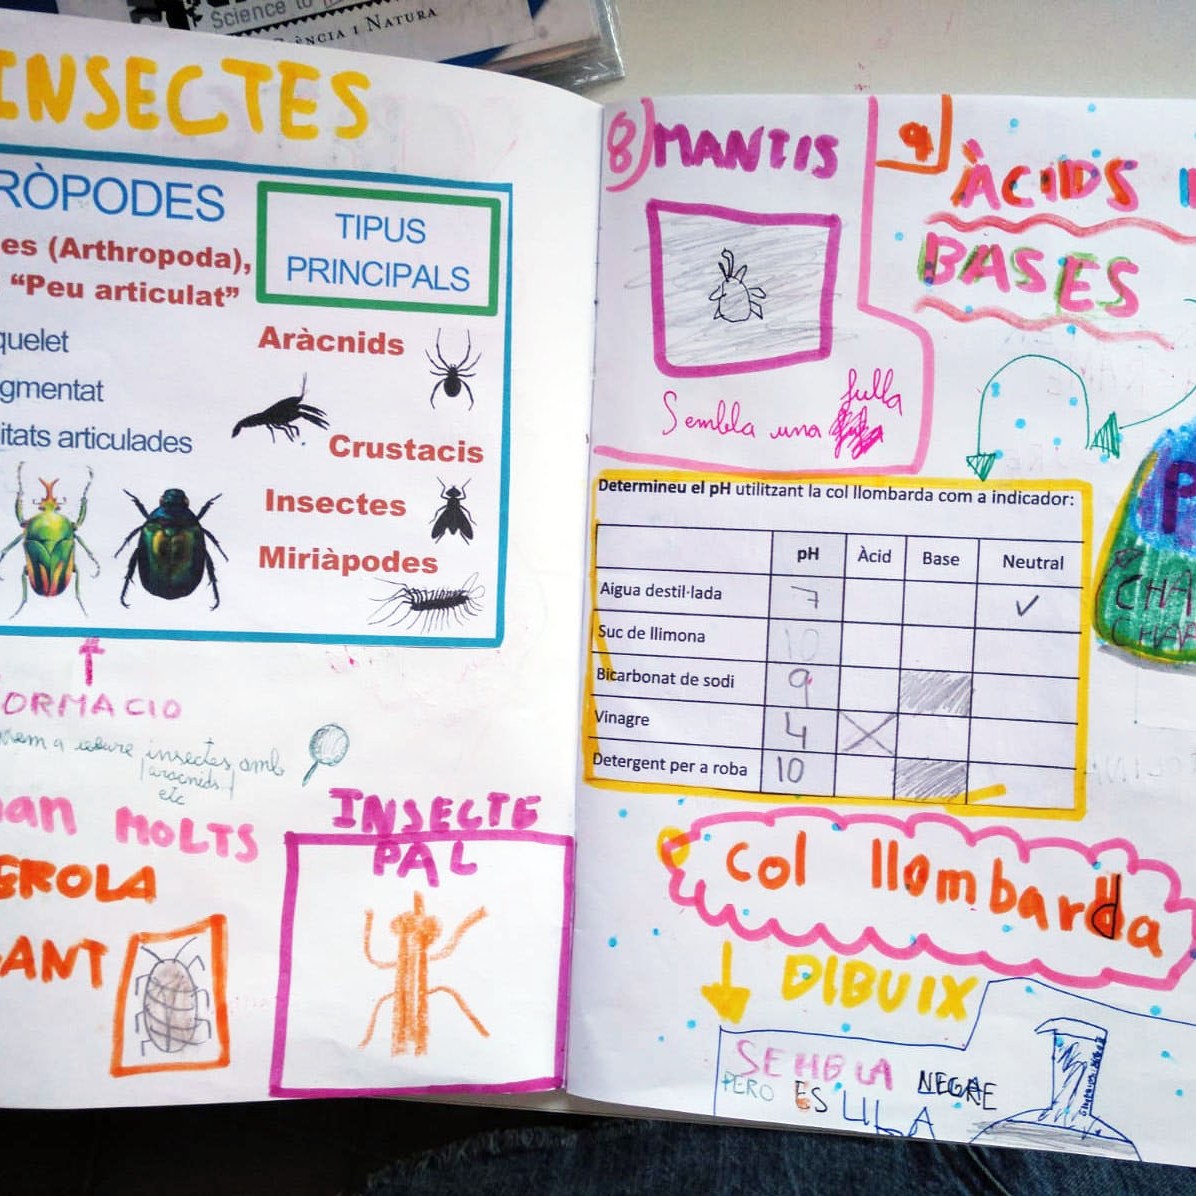 Science to
CIÈNCIA I NATURA
INSECTES
RÒPODES
es (Arthropoda),
“Peu articulat”
quelet
gmentat
itats articulades
TIPUS
PRINCIPALS
Aràcnids
Crustacis
Insectes
Miriàpodes
ORMACIO
a veure insectes, amb
aracnids
etc
han MOLTS
EROLA
ANT
INSECTE
PAL
8) MANTIS
Sembla una fulla
9) ÀCIDS I
BASES
Determineu el pH utilitzant la col llombarda com a indicador:
pH Àcid Base Neutral
Aigua destil·lada 7 ✓
Suc de llimona 10
Bicarbonat de sodi 9
Vinagre 4 X
Detergent per a roba 10
P
CHA
CHA
col llombarda
DIBUIX
SEMBLA NEGRE
PERO ES LILA